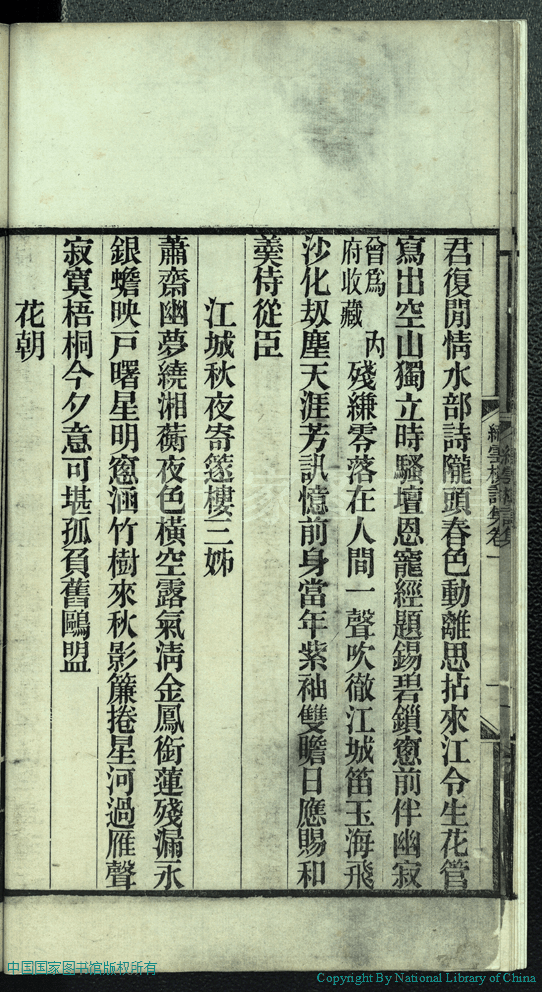 君復閒情水部詩隴頭春色動離思拈來江令生花管
寫出空山獨立時騷壇恩寵經題錫碧鎖窻前伴幽寂
曾爲內
府收藏
殘縑零落在人間一聲吹徹江城笛玉海飛
沙化刼塵天涯芳訊憶前身當年紫袖雙瞻日應賜和
羹侍從臣
江城秋夜寄簉樓三姊
蕭齋幽夢繞湘蘅夜色橫空露氣淸金鳳銜蓮殘漏永
銀蟾映戸曙星明窻涵竹樹來秋影簾捲星河過雁聲
寂寞梧桐今夕意可堪孤負舊鷗盟
花朝
中国国家图书馆版权所有
Copyright By National Library of China